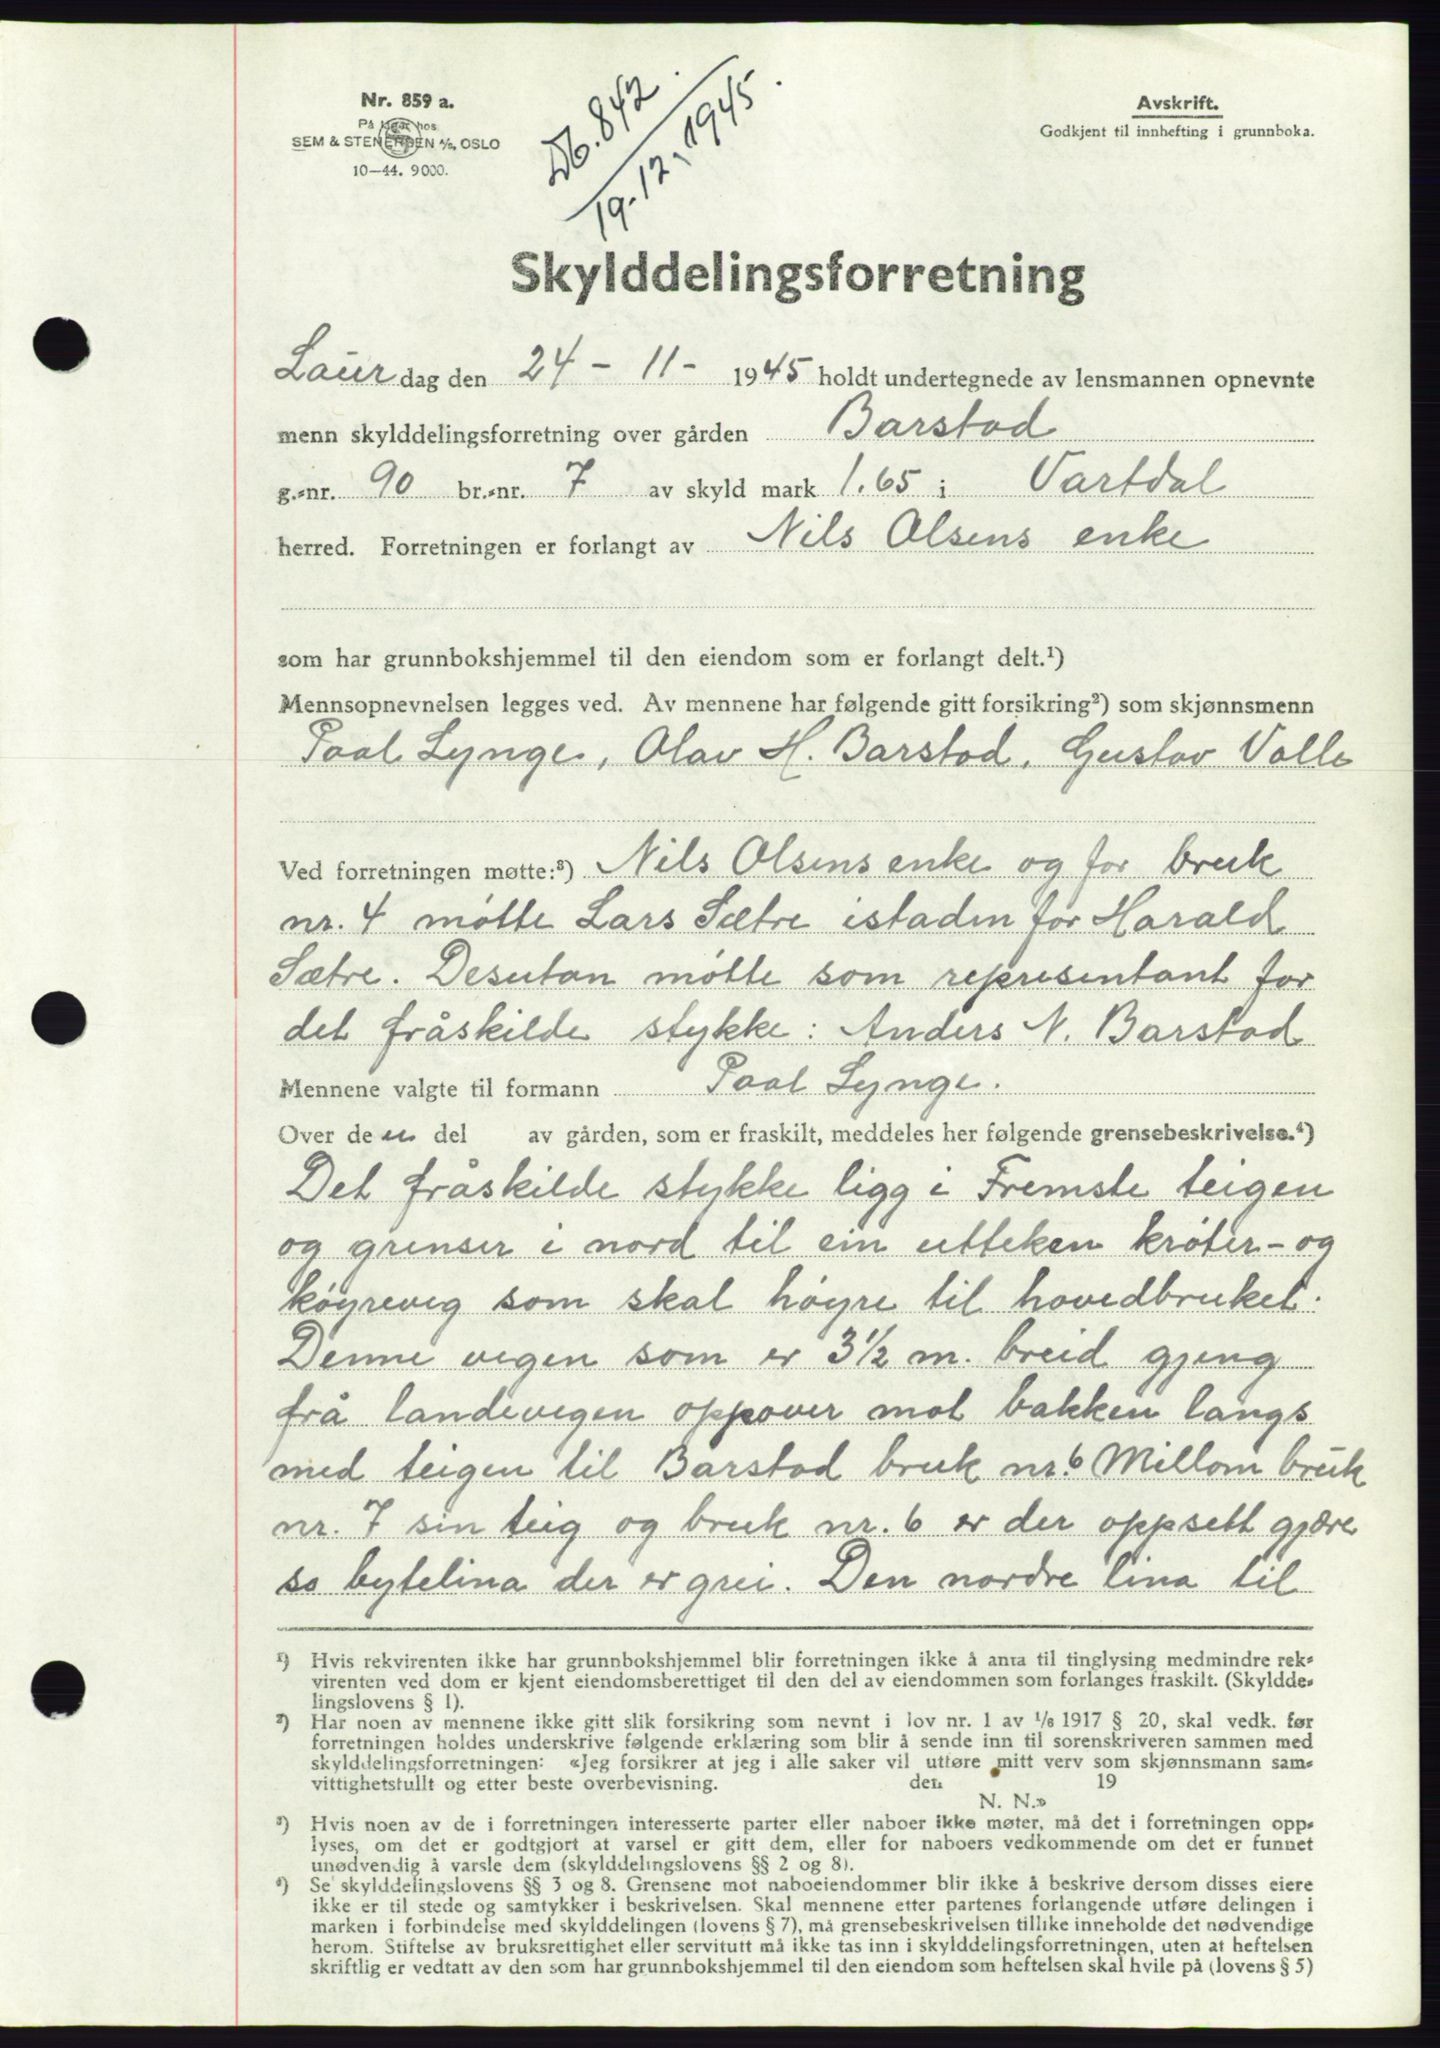 Nr. 859 a.
På lager hos
SEM & STENERSEN A/S, OSLO
10—44. 9000.
Db. 842
19-12, 1945.
Avskrift.
Godkjent til innhefting i grunnboka.
Skylddelingsforretning
Laurdag den 24 - 11 - 1945 holdt undertegnede av lensmannen opnevnte
menn skylddelingsforretning over gården Barstad
g.-nr. 90 br.-nr. 7 av skyld mark 1.65 i Vartdal
herred. Forretningen er forlangt av Nils Olsens enke
som har grunnbokshjemmel til den eiendom som er forlangt delt.¹)
Mennsopnevnelsen legges ved. Av mennene har følgende gitt forsikring²) som skjønnsmenn
Paal Lynge, Olav H. Barstad, Gustav Valle
Ved forretningen møtte:³) Nils Olsens enke og for bruk
nr. 4 møtte Lars Sætre istaden for Harald
Sætre. Desutan møtte som representant for
det fråskilde stykke: Anders N. Barstad
Mennene valgte til formann Paal Lynge.
Over de en del av gården, som er fraskilt, meddeles her følgende grensebeskrivelse.⁴)
Det fråskilde stykke ligg i Fremste teigen
og grenser i nord til ein utteken krøter- og
køyreveg som skal høyre til hovedbruket.
Denne vegen som er 3½ m. breid gjeng
frå landevegen oppover mot bakken langs
med teigen til Barstad bruk nr. 6 Millom bruk
nr. 7 sin teig og bruk nr. 6 er der oppsett gjære
so bytelina der er grei. Den nordre lina til
¹) Hvis rekvirenten ikke har grunnbokshjemmel blir forretningen ikke å anta til tinglysing medmindre rek-
virenten ved dom er kjent eiendomsberettiget til den del av eiendommen som forlanges fraskilt. (Skyldde-
lingslovens § 1).
²) Har noen av mennene ikke gitt slik forsikring som nevnt i lov nr. 1 av 1/6 1917 § 20, skal vedk. før
forretningen holdes underskrive følgende erklæring som blir å sende inn til sorenskriveren sammen med
skylddelingsforretningen: «Jeg forsikrer at jeg i alle saker vil utføre mitt verv som skjønnsmann sam-
vittighetsfullt og etter beste overbevisning. den 19
N. N.»
³) Hvis noen av de i forretningen interesserte parter eller naboer ikke møter, må det i forretningen opp-
lyses, om det er godtgjort at varsel er gitt dem, eller for naboers vedkommende om det er funnet
unødvendig å varsle dem (skylddelingslovens §§ 2 og 8).
⁴) Se skylddelingslovens §§ 3 og 8. Grensene mot naboeiendommer blir ikke å beskrive dersom disses eiere
ikke er til stede og samtykker i beskrivelsen. Skal mennene etter partenes forlangende utføre delingen i
marken i forbindelse med skylddelingen (lovens § 7), må grensebeskrivelsen tillike inneholde det nødvendige
herom. Stiftelse av bruksrettighet eller servitutt må ikke tas inn i skylddelingsforretningen, uten at heftelsen
skriftlig er vedtatt av den som har grunnbokshjemmel til den eiendom som heftelsen skal hvile på (lovens § 5)